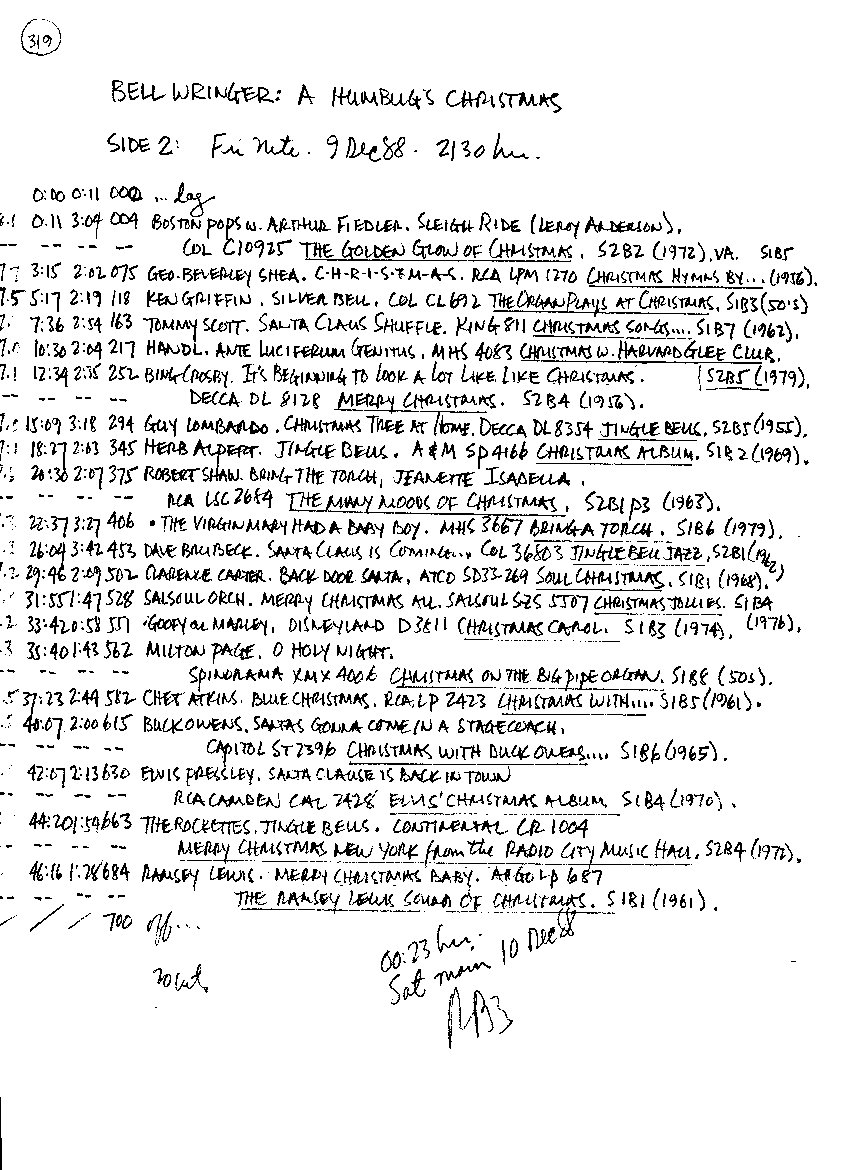 319
BELL WRINGER: A HUMBUG'S CHRISTMAS
SIDE 2: Fri Nite. 9 Dec 88 - 2130 hr.
0:00 0:11 000 ... lag
0:11 3:04 004 BOSTON POPS W. ARTHUR FIEDLER. SLEIGH RIDE (LEROY ANDERSON).
-- -- -- -- COL C10925 THE GOLDEN GLOW OF CHRISTMAS. S2B2 (1972). VA. S1B5
3:15 2:02 075 GEO. BEVERLEY SHEA. C-H-R-I-S-T-M-A-S. RCA LPM 1270 CHRISTMAS HYMNS BY... (1956).
7.5 5:17 2:19 118 KEN GRIFFIN. SILVER BELL. COL CL 692 THE ORGAN PLAYS AT CHRISTMAS. S1B3 (50'S)
7:36 2:54 163 TOMMY SCOTT. SANTA CLAUS SHUFFLE. KING 811 CHRISTMAS SONGS.... S1B7 (1962).
10:30 2:04 217 HANDL. ANTE LUCIFERUM GENITUS. MHS 4083 CHRISTMAS W. HARVARD GLEE CLUB.
7.1 12:34 2:35 252 BING CROSBY. IT'S BEGINNING TO LOOK A LOT LIKE LIKE CHRISTMAS. S2B5 (1979).
-- -- -- -- DECCA DL 8128 MERRY CHRISTMAS. S2B4 (1956).
15:09 3:18 294 GUY LOMBARDO. CHRISTMAS TREE AT HOME. DECCA DL 8354 JINGLE BELLS. S2B5 (1955).
18:27 2:03 345 HERB ALPERT. JINGLE BELLS. A&M SP 4166 CHRISTMAS ALBUM. S1B2 (1969).
20:30 2:07 375 ROBERT SHAW. BRING THE TORCH, JEANETTE ISABELLA.
-- -- -- -- RCA LSC 2684 THE MANY MOODS OF CHRISTMAS. S2B1p3 (1963).
22:37 3:27 406 • THE VIRGIN MARY HAD A BABY BOY. MHS 3667 BRING A TORCH. S1B6 (1979).
26:04 3:42 453 DAVE BRUBECK. SANTA CLAUS IS COMING... COL 36803 JINGLE BELL JAZZ, S2B1 (1962)
29:46 2:09 502 CLARENCE CARTER. BACK DOOR SANTA. ATCO SD33-269 SOUL CHRISTMAS. S1B1 (1968).
31:55 1:47 528 SALSOUL ORCH. MERRY CHRISTMAS ALL. SALSOUL SZS 5507 CHRISTMAS JOLLIES. S1B4
33:42 0:58 551 • GOOFY as MARLEY. DISNEYLAND D3811 CHRISTMAS CAROL. S1B3 (1974). (1976).
35:40 1:43 562 MILTON PAGE. O HOLY NIGHT.
SPINORAMA XMX 4006 CHRISTMAS ON THE BIG PIPE ORGAN. S1B8 (50s).
37:23 2:44 582 CHET ATKINS. BLUE CHRISTMAS. RCA LP 2423 CHRISTMAS WITH.... S1B5 (1961).
40:07 2:00 615 BUCK OWENS. SANTAS GONNA COME IN A STAGECOACH.
-- -- -- -- CAPITOL ST 2396 CHRISTMAS WITH BUCK OWENS.... S1B6 (1965).
42:07 2:13 630 ELVIS PRESSLEY. SANTA CLAUSE IS BACK IN TOWN
-- -- -- RCA CAMDEN CAL 2428 ELVIS' CHRISTMAS ALBUM. S1B4 (1970).
44:20 1:54 663 THE ROCKETTES. JINGLE BELLS. CONTINENTAL CR 1004
-- -- -- -- MERRY CHRISTMAS NEW YORK from the RADIO CITY MUSIC HALL. S2B4 (1972).
46:16 1:28 684 RAMSEY LEWIS. MERRY CHRISTMAS BABY. ARGO LP 687
-- -- -- -- THE RAMSEY LEWIS SOUND OF CHRISTMAS. S1B1 (1961).
/ / / 700 off...
20 cuts
00:23 hr.
Sat morn 10 Dec 88
RB3